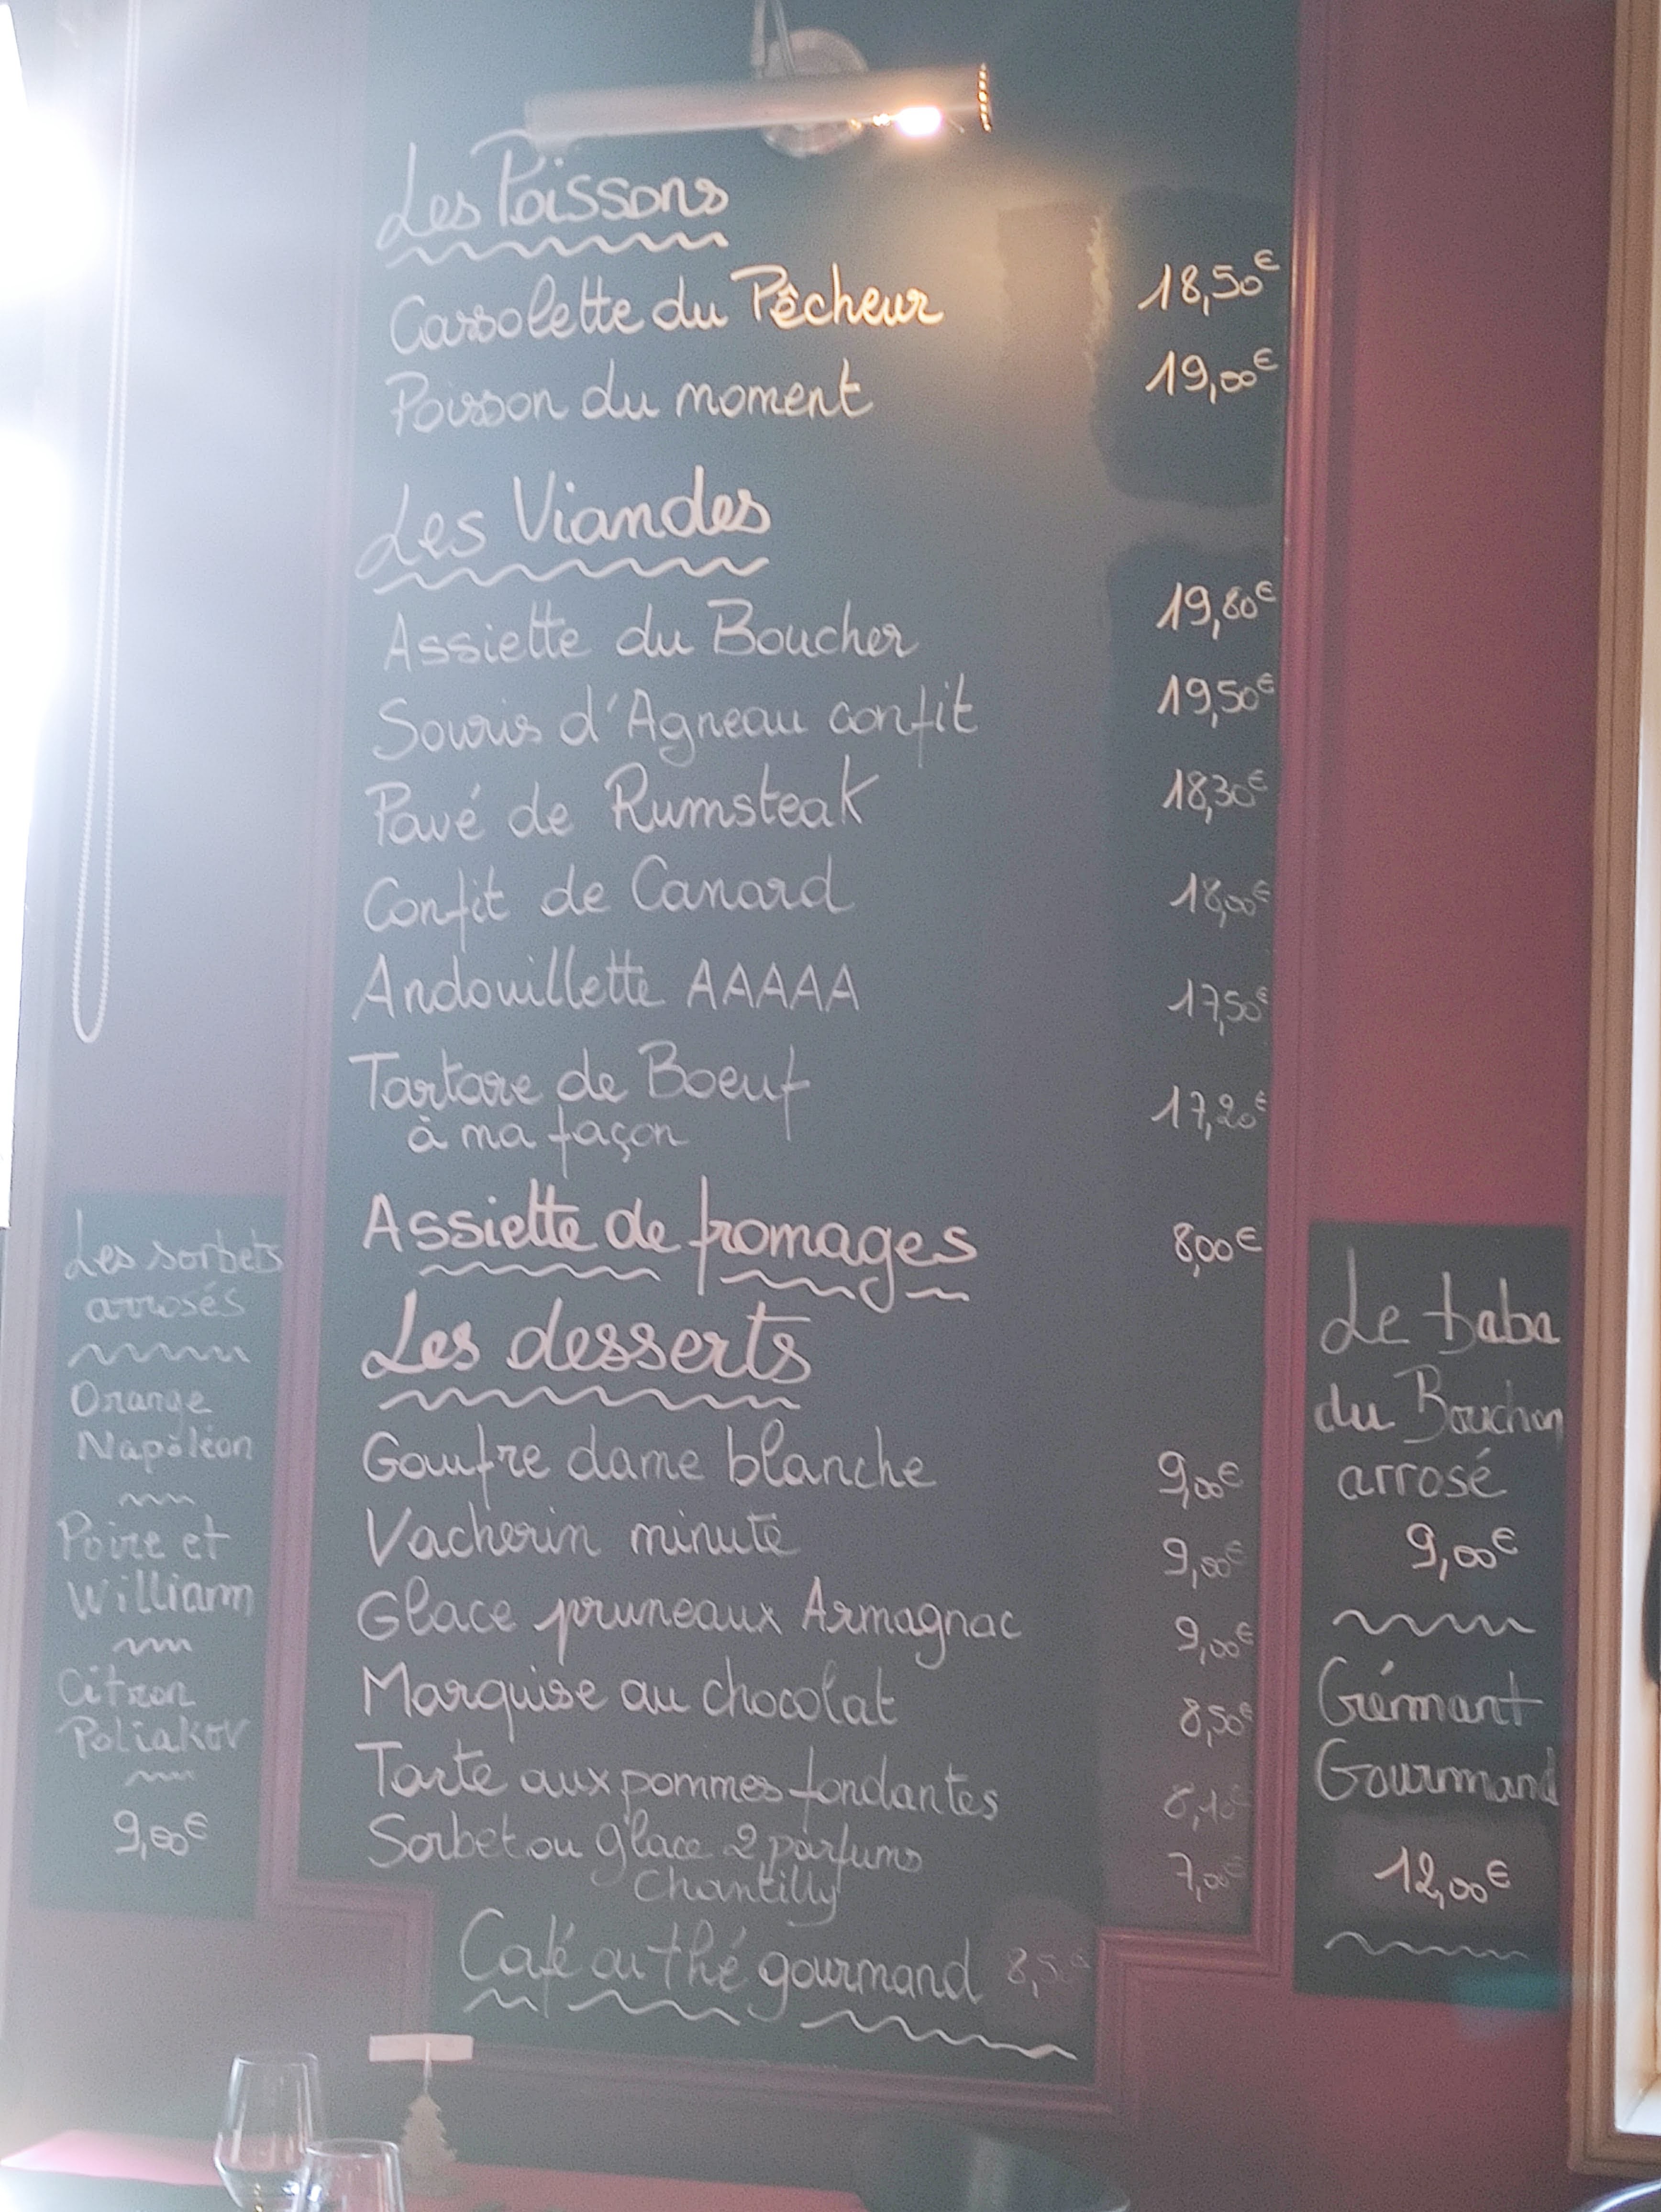 Les Poissons
Cassolette du Pêcheur 18,50€
Poisson du moment 19,00€
Les Viandes
Assiette du Boucher 19,80€
Souris d'Agneau confit 19,50€
Pavé de Rumsteak 18,30€
Confit de Canard 18,00€
Andouillette AAAAA 17,50€
Tartare de Boeuf 17,20€
à ma façon
Assiette de fromages 8,00€
Les desserts
Goufre dame blanche 9,00€
Vacherin minute 9,00€
Glace pruneaux Armagnac 9,00€
Marquise au chocolat 8,50€
Tarte aux pommes fondantes 8,10€
Sorbet ou glace 2 parfums 7,00€
Chantilly
Café ou thé gourmand 8,50€
Les sorbets
arrosés
Orange
Napoléon
Poire et
William
Citron
Poliakov
9,00€
Le baba
du Bouchon
arrosé
9,00€
Crémant
Gourmand
12,00€